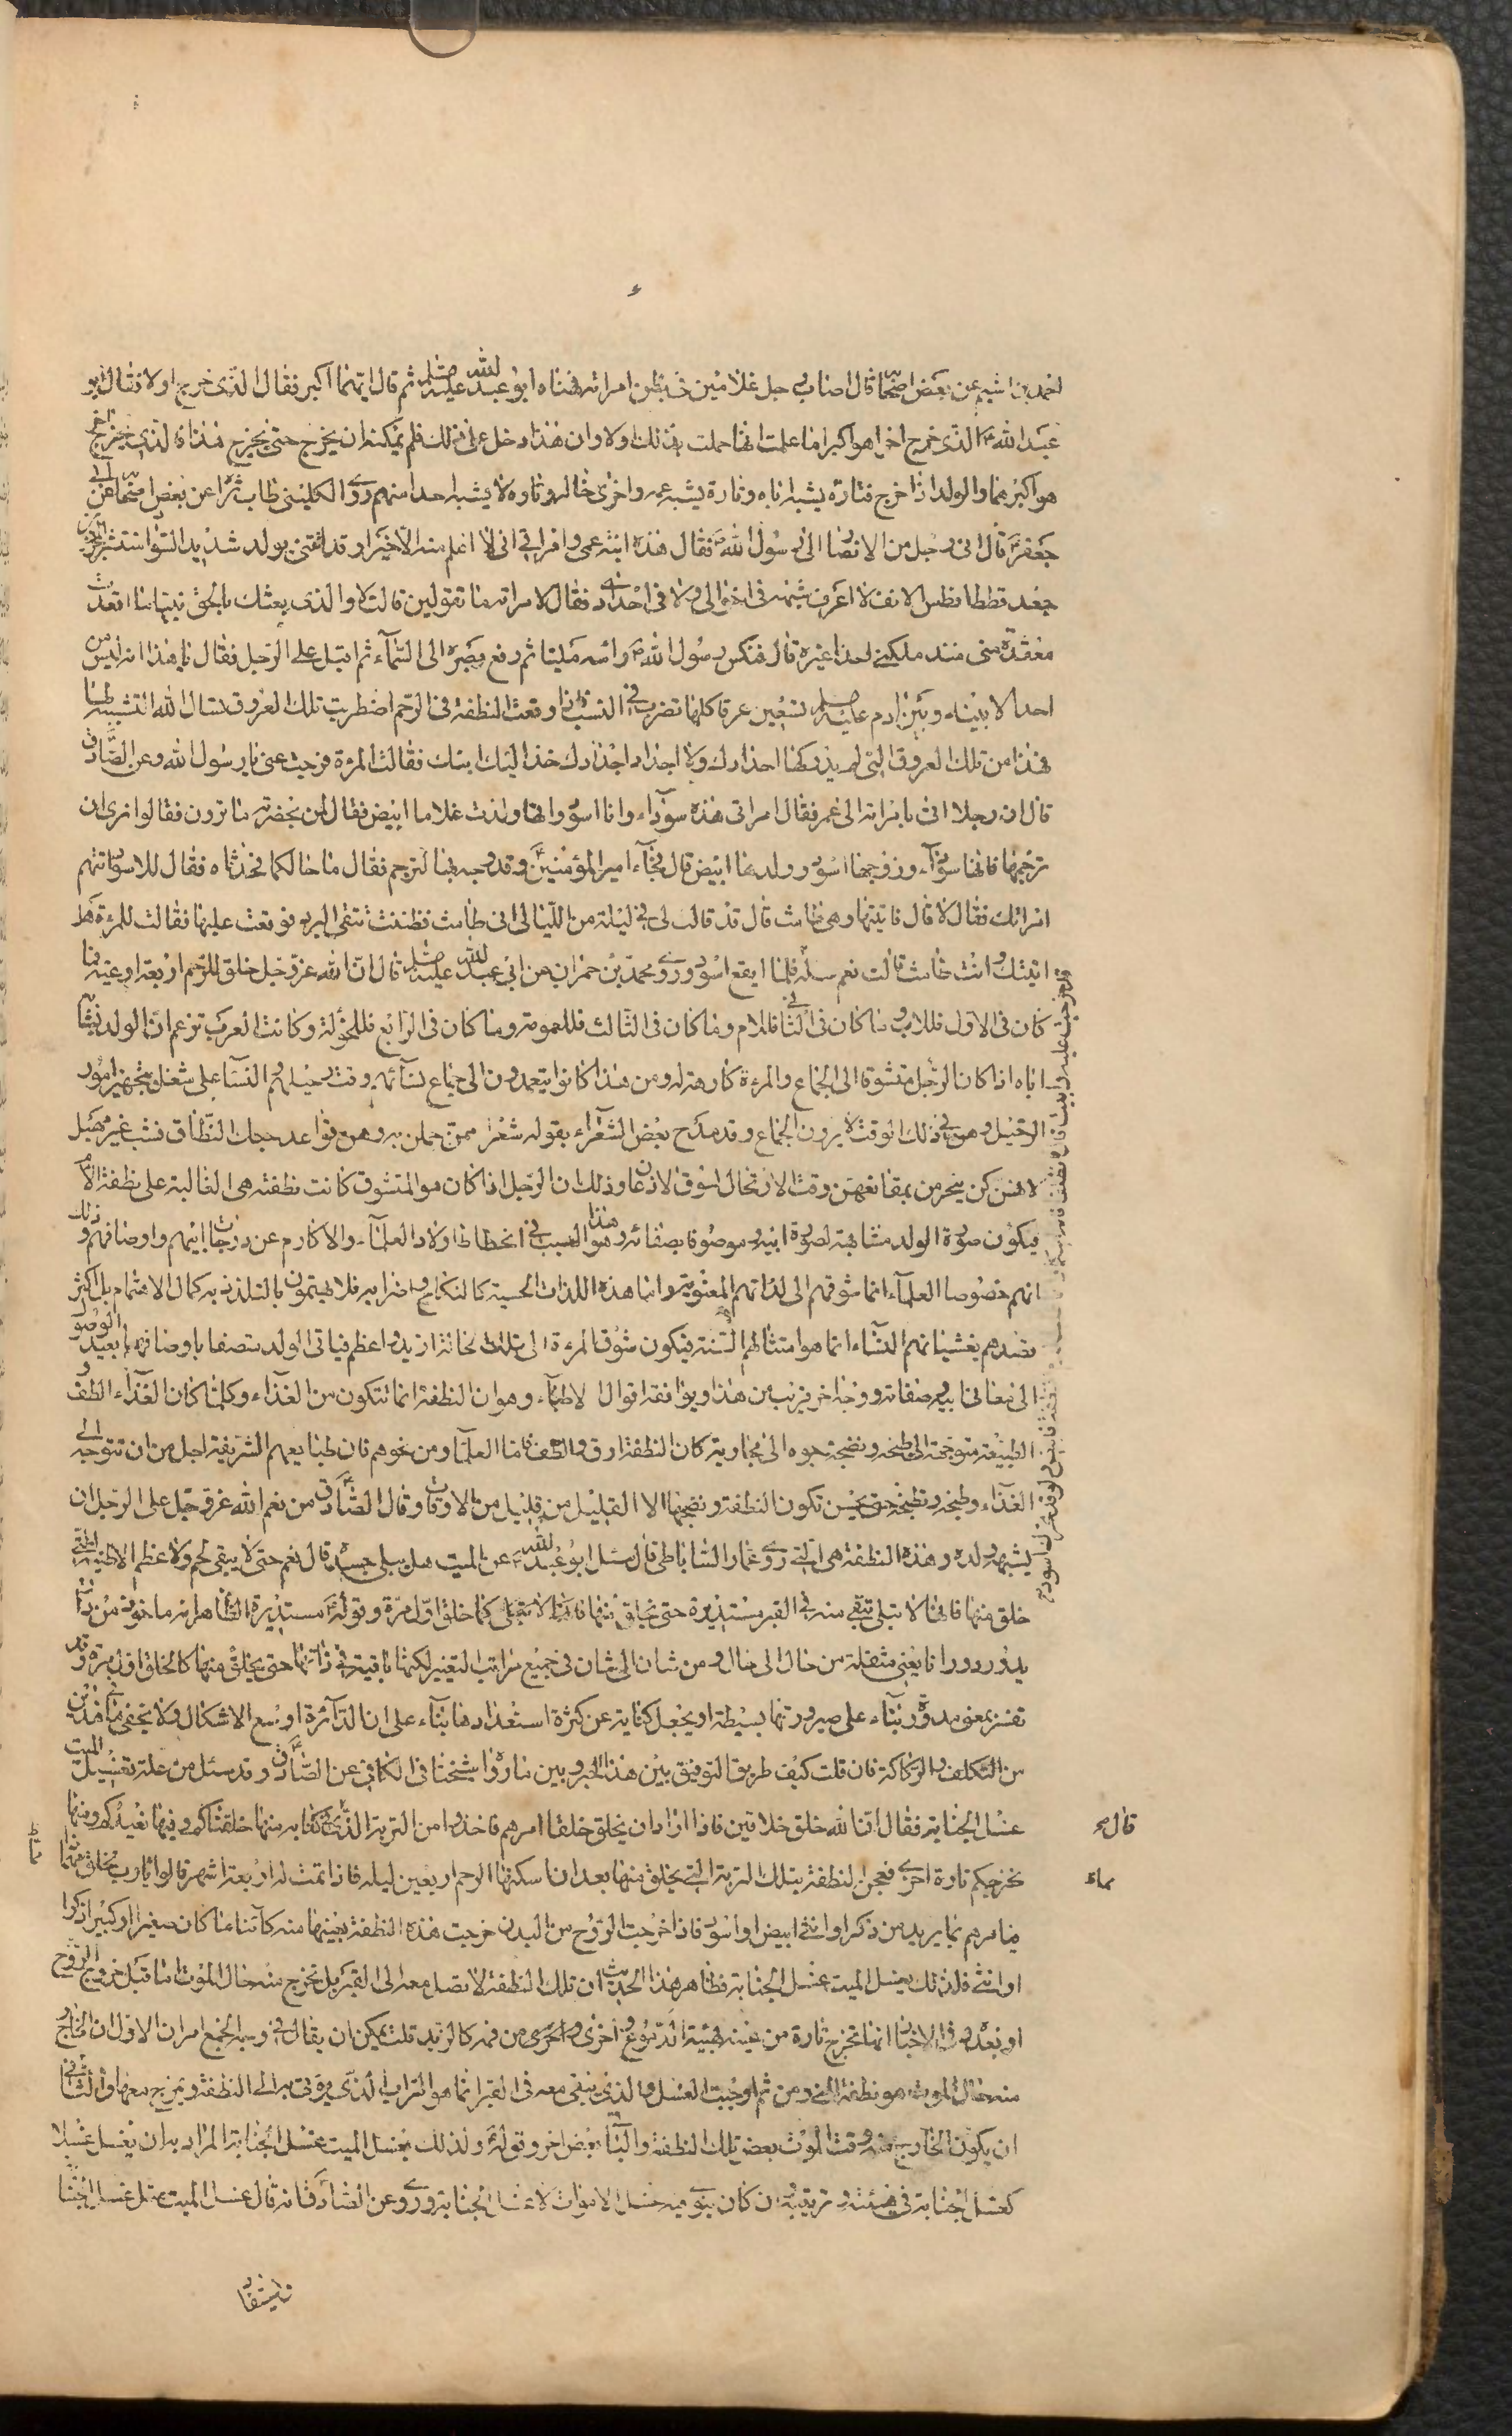 احمد بن اشيم عن بعض اصحابنا قال اصاب رجل غلامين في بطن امراته فهناه ابو عبد الله عليه السلام ثم قال ايهما اكبر فقال الذي خرج اولا فقال ابو
عبد الله ع الذي خرج اخرا هو اكبر اما علمت انها حملت بذلك اولا وان هذا دخل على ذلك فلم يمكنه ان يخرج حتى يخرج هذا فالذي يخرج اخرا
هو اكبرهما والولد اذا خرج فتارة يشبه اباه وتارة يشبه عمه واخرى خاله وتارة لا يشبه احدا منهم روى الكليني طاب ثراه عن بعض اصحابنا عن ابي
جعفر ع قال اتى رجل من الانصار الى رسول الله ص فقال هذه ابنة عمي وامراتي اني لا اعلم منها الا خيرا وقد اتتني بولد شديد السواد منتشر المنخرين
جعد قطط افطس الانف لا اعرف شبهه في اخوالي ولا في اجدادي فقال لامراته ما تقولين قالت لا والذي بعثك بالحق نبيا ما اقعدت
مقعده مني منذ ملكني احدا غيره قال فنكس رسول الله ص راسه مليا ثم رفع بصره الى السماء ثم اقبل على الرجل فقال يا هذا انه ليس من
احد الا بينه وبين ادم عليه السلام تسعين عرقا كلها تضرب في النسب فاذا وقعت النطفة في الرحم اضطربت تلك العروق تسال الله الشبه لها
فهذا من تلك العروق التي لم يدركها اجدادك ولا اجداد اجدادك خذ اليك ابنك فقالت المرءة فرجت عني يا رسول الله وعن الصادق ع
قال ان رجلا اتى بامراته الى عمر فقال امراتي هذه سوداء وانا اسود وانها ولدت غلاما ابيض فقال لمن بحضرته ما ترون فقالوا نرى ان
ترجمها فانها سوداء وزوجها اسود وولدها ابيض قال فجاء امير المؤمنين ع وقد وجه بها لترجم فقال ما حالكما فحدثاه فقال للاسود اتتهم
امراتك فقال لا قال فاتيتها وهي طامث قال قد قالت لي في ليلة من الليالي اني طامث فظننت تتقي البرد فوقعت عليها فقالت للمرءة هل
اتيتك وانت طامث قالت نعم سله فلما ايفع اسود وروى محمد بن حمران عن ابي عبد الله عليه السلام قال ان الله عز وجل خلق للرحم اربعة اوعية فما
كان في الاول فللاب وما كان في الثاني فللام وما كان في الثالث فللعمومة وما كان في الرابع فللخؤلة وكانت العرب تزعم ان الولد يشابه
اباه اذا كان الرجل متشوقا الى الجماع والمرءة كارهة له ومن هذا كانوا يتعمدون الى جماع نسائهم وقت رحيلهم والنساء على شغل بتجهيز امور
الرحيل وهن في ذلك الوقت لا يردن الجماع وقد مدح بعض الشعراء بقوله شعر ممن حملن به وهن عواقد حبك النطاق فشب غير مهبل
لانهن كن يخرجن بمقانعهن وقت الارتحال لسوق الاذعان وذلك ان الرجل اذا كان هو المتشوق كانت نطفته هي الغالبة على نطفة الام
فيكون صورة الولد مشابهة لصورة ابيه وموصوفا بصفاته وهذا هو السبب في انحطاط اولاد العلماء والاكارم عن درجات ابيهم واوصافهم وذلك
انهم خصوصا العلماء انما شوقهم الى لذاتهم المعنوية واما هذه اللذات الحسية كالنكاح واضرابه فلا يهتمون بالتلذذ به كمال الاهتمام بل اكثر
قصدهم بغشيانهم النساء انما هو امتثالهم السنة فيكون شوق المرءة الى تلك الحالة ازيد واعظم فياتي الولد متصفا باوصافها بعيد الوصول
الى معاني ابيه وصفاته ووجه اخر قريب من هذا ويوافقه اقوال الاطباء وهو ان النطفة انما تتكون من الغذاء وكلما كان الغذاء الطف و
الطبيعة متوجهة الى طبخه ونضجه وجوه الى مجاريه كان النطفة ارق والطف واما العلماء ومن نحوهم فان طبايعهم الشريفة اجل من ان تتوجه الى
الغذاء وطبخه ونطبخه حتى يحسن تكون النطفة ونضجها الا القليل من قليل من الاوقات وقال الصادق ع من نعم الله عز وجل على الرجل ان
يشبهه ولده وهذه النطفة هي التي روى عمار الساباطي قال سئل ابو عبد الله ع عن الميت هل يبلى جسده قال نعم حتى لا يبقى لحم ولا عظم الا طينته التي
خلق منها فانها لا تبلى تبقى منه في القبر مستديرة حتى يخلق منها كما خلق اول مرة وقوله ع مستديرة الظاهر انه ماخوذ من دار
يدور دورا نا يعني منتقلة من حال الى حال ومن شان الى شان في جميع مراتب التغير لكنها باقية في ذاتها حتى يخلق منها كما خلق اول مرة وقد
تفسر بمعنى مدورة بناء على صيرورتها بسيطة او يجعل كناية عن كثرة استعدادها بناء على ان الدائرة اوسع الاشكال ولا يخفى ما في هذين
من التكلف والركاكة فان قلت كيف طريق التوفيق بين هذا الخبر وبين ما رواه شيخنا في الكافي عن الصادق ع وقد سئل عن علة تغسيل الميت
غسل الجنابة فقال ان الله خلق خلاقين فاذا اراد ان يخلق خلقا امرهم فاخذوا من التربة التي قال في كتابه منها خلقناكم وفيها نعيدكم ومنها
نخرجكم تارة اخرى فعجن النطفة بتلك التربة التي يخلق منها بعد ان اسكنها الرحم اربعين ليلة فاذا تمت له اربعة اشهر قالوا يا رب تخلق ماذا
فيامرهم بما يريد من ذكر او انثى ابيض او اسود فاذا خرجت الروح من البدن خرجت هذه النطفة بعينها منه كائنا ما كان صغيرا او كبيرا ذكرا
او انثى فلذلك يغسل الميت غسل الجنابة فظاهر هذا الحديث ان تلك النطفة لا تصل معه الى القبر بل تخرج منه حال الموت اما قبل خروج الروح
او بعده وفي الاخبار انما تخرج تارة من عينه بهيئة الدموع واخرى من فمه كالزبد قلت يمكن ان يقال في وجه الجمع امران الاول ان الخارج
منه حال الموت هو نطفة المني ومن ثم اوجبت الغسل والذي يبقى معه في القبر انما هو التراب الذي يؤتى به الى النطفة ويمزج معها والثاني
ان يكون الخارج منه وقت الموت بعض تلك النطفة والباقي بعض اخر وقوله ع ولذلك يغسل الميت غسل الجنابة المراد به ان يغسل غسلا
كغسل الجنابة في هيئته وترتيبه وان كان ينوي فيه غسل الاموات لا غسل الجنابة وروى عن الصادق ع انه قال غسل الميت مثل غسل الجنابة
قال
ماء